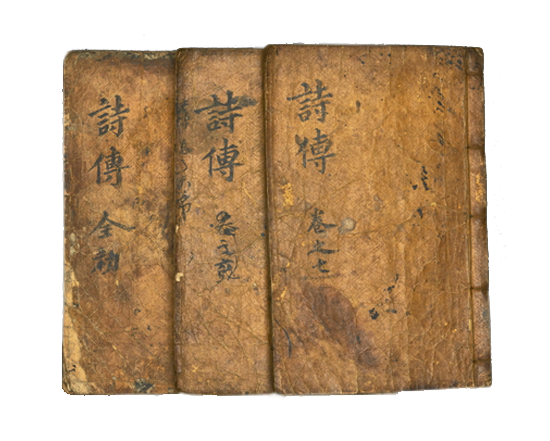 詩傳
卷之七
詩傳
卷之
詩傳
全